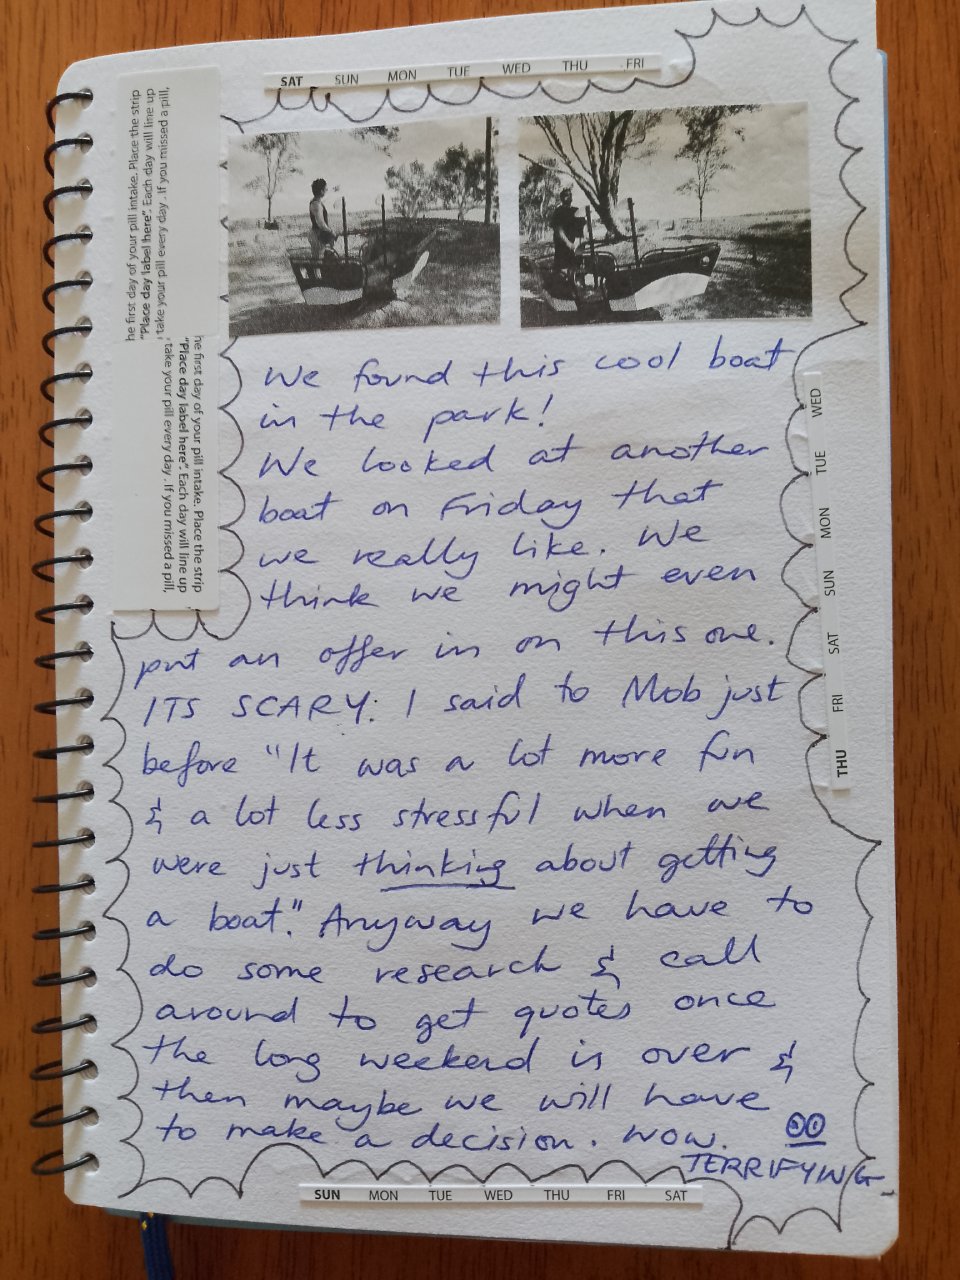 SAT SUN MON TUE WED THU FRI
he first day of your pill intake. Place the strip
"Place day label here". Each day will line up
take your pill every day. If you missed a pill,
he first day of your pill intake. Place the strip
"Place day label here". Each day will line up
take your pill every day. If you missed a pill,
We found this cool boat
in the park!
We looked at another
boat on Friday that
we really like. We
think we might even
put an offer in on this one.
ITS SCARY. I said to Mob just
before "It was a lot more fun
& a lot less stressful when we
were just thinking about getting
a boat". Anyway we have to
do some research & call
around to get quotes once
the long weekend is over &
then maybe we will have
to make a decision. wow.
TERRIFYING
THU FRI SAT SUN MON TUE WED
SUN MON TUE WED THU FRI SAT